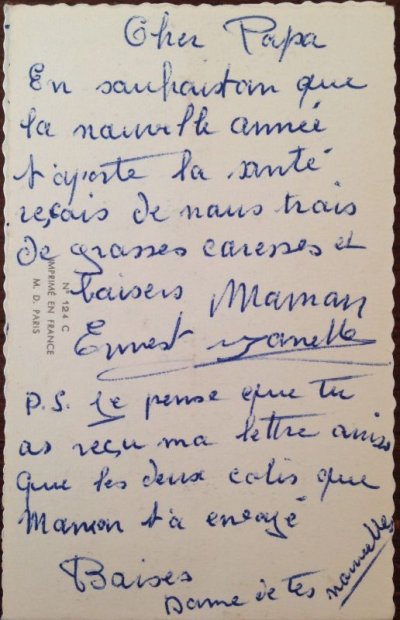 Cher Papa
En souhaistan que
la nouvelle année
t'aporte la santé
reçois de nous trois
de grosses caresses et
baisers Maman
Ernest yanette
P.S. je pense que tu
as reçu ma lettre ainsi
que les deux colis que
Maman t'a envoyé
Baises
Dame de tes nouvelles
N° 124 C
IMPRIMÉ EN FRANCE
M. D. PARIS